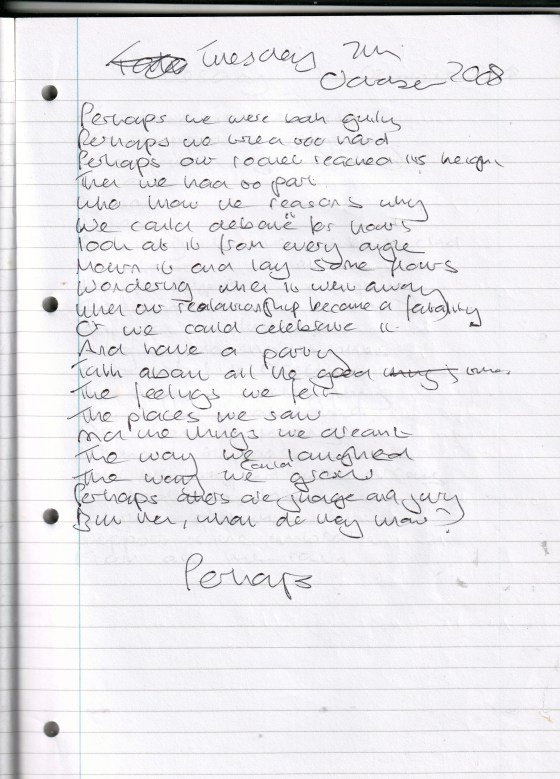 Tuesday 7th
October 2008
Perhaps we were both guilty
Perhaps we tried too hard
Perhaps our rocket reached its height
Then we had to part
Who know the reasons why
We could debate it for hours
look at it from every angle
Mourn it and lay some flowers
Wondering when it went away
when our relationship became a fatality
Or we could celebrate it
And have a party
Talk about all the good times.
The feelings we felt
The places we saw
And the things we dreamt
The way we laughed
The way we could grow
Perhaps others are judge and jury
But hey, what do they know?
Perhaps